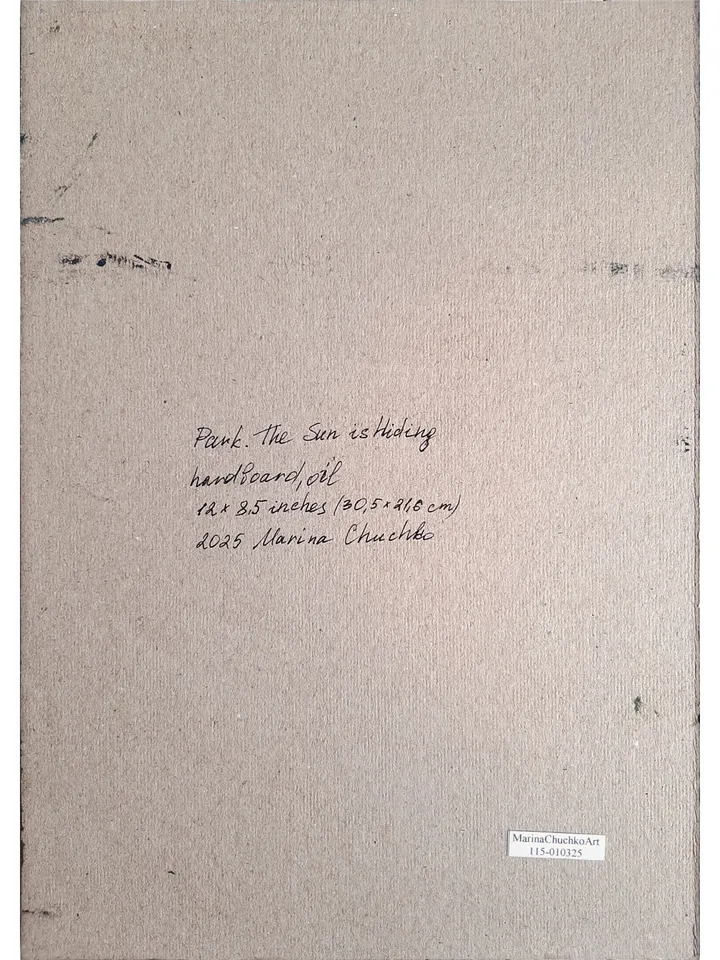 Park. The Sun is Hiding
hardboard, oil
12 x 8,5 inches (30,5 x 21,6 cm)
2025 Marina Chuchko
MarinaChuchkoArt
115-010325